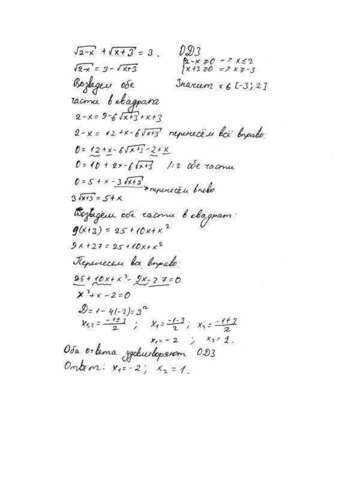 √2-x + √x+3 = 3. ОДЗ
√2-x = 3 - √x+3 {2-x≥0 => x≤2
x+3≥0 => x≥-3
Возведем обе Значит x ∈ [-3; 2]
части в квадрат
2-x = 9-6√x+3 + x+3
2-x = 12+x-6√x+3 перенесём всё вправо
0 = 12+x-6√x+3 -2+x
0 = 10+2x-6√x+3 /:2 обе части
0 = 5+x-3√x+3 перенесём влево
3√x+3 = 5+x
Возведем обе части в квадрат:
9(x+3) = 25+10x+x²
9x+27 = 25+10x+x²
Перенесем всё вправо:
25+10x+x²-9x-27=0
x²+x-2=0
D=1-4(-2)=3²
x₁,₂ = -1±3/2 ; x₁ = -1-3/2 ; x₂ = -1+3/2
x₁=-2 ; x₂=1.
Оба ответа удовлетворяют ОДЗ
Ответ: x₁=-2; x₂=1.